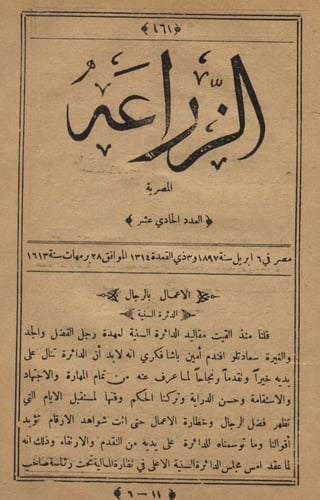 ﴿١٦١﴾
الزراعه
المصرية
﴿العدد الحادي عشر﴾
مصر في ٦ ابريل سنة ١٨٩٧ و٣ ذي القعدة ١٣١٤ الموافق ٢٨ برمهات سنة ١٦١٣
﴿الاعمال بالرجال﴾
﴿الدائرة السنية﴾
قلنا منذ القيت مقاليد الدائرة السنية لعهدة رجل الفضل والجد
والغيرة سعادتلو افندم أمين باشا فكري انه لابد أن الدائرة تنال على
يديه خيراً وتقدماً ونجاحاً لما عرف عنه من تمام المهارة والاجتهاد
والاستقامة وحسن الدراية وتركنا الحكم وقتها لمستقبل الايام التي
تظهر فضل الرجال وخطارة الاعمال حتى اتت شواهد الارقام تؤيد
أقوالنا وما توسمناه للدائرة على يديه من التقدم والارتقاء وذلك انه
لما عقد امس مجلس الدائرة السنية الاعلى في نظارة المالية تحت رئاسة صاحب
١١ — ٦